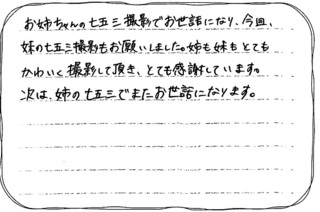 お姉ちゃんの七五三撮影でお世話になり、今回、
妹の七五三撮影もお願いしました。姉も妹もとても
かわいく撮影して頂き、とても感謝しています。
次は、姉の七五三でまたお世話になります。